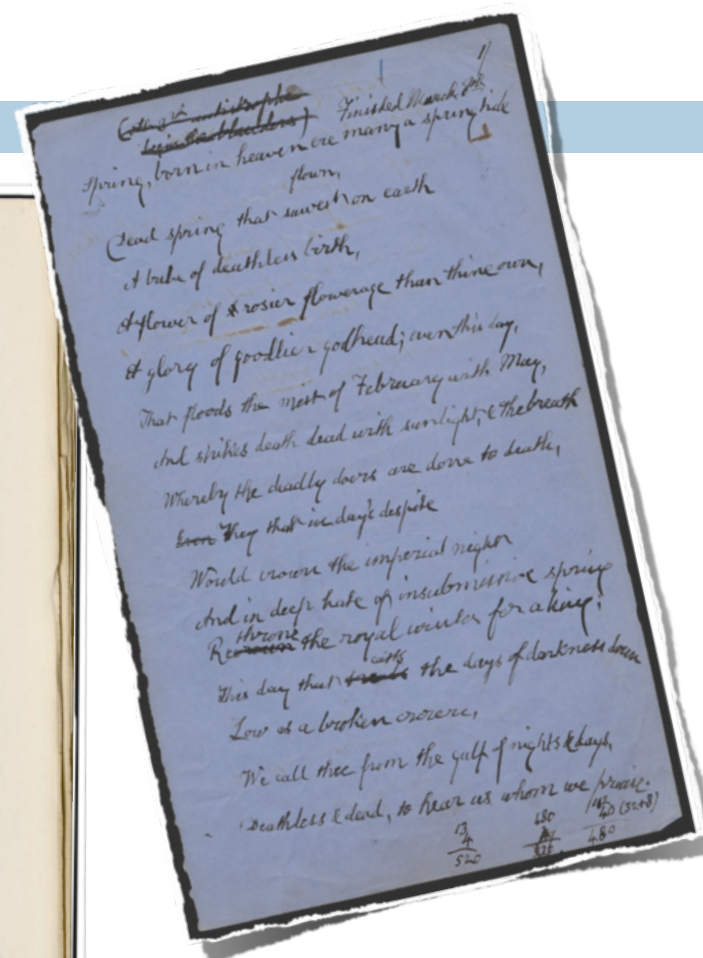 1/
Finished March 8th
Spring, born in heaven ere many a springtide
flown,
Dead spring that sawest on earth
A babe of deathless birth,
A flower of rosier flowerage than thine own,
A glory of goodlier godhead; even this day,
That floods the mist of February with May,
And strikes death dead with sunlight, & the breath
Whereby the deadly doers are done to death,
Even They that in day's despite
Would crown the imperial night
And in deep hate of insubmissive spring
Rethrone the royal winter for a king;
This day that casts the days of darkness down
Low as a broken crown,
We call thee from the gulf of nights & days,
Deathless & dead, to hear us whom we praise.
13 480 40 (32+8)
4 480
520